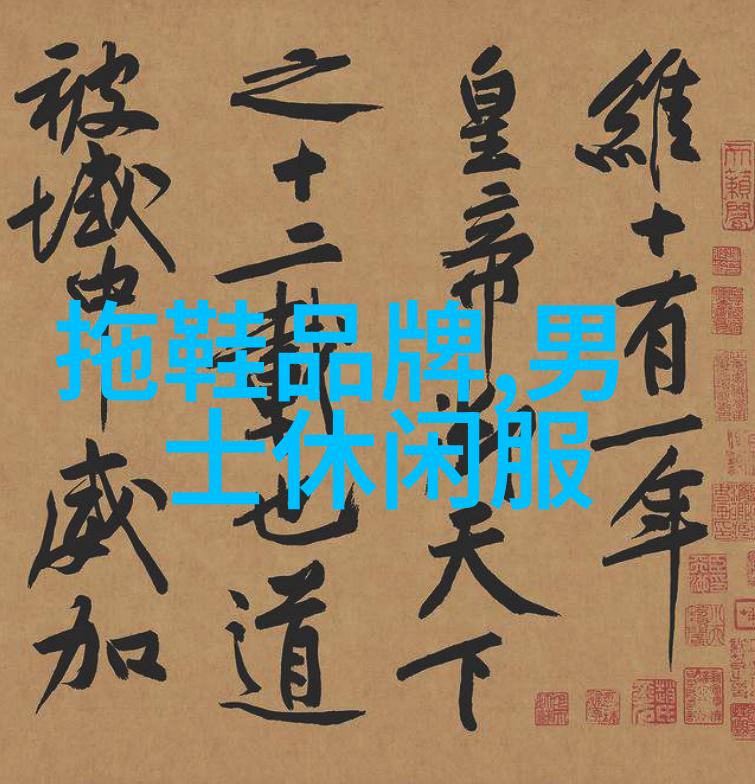 維十有一年
皇帝御天下
之十二載也道
被域中威加
拖鞋品牌,男
士休闲服